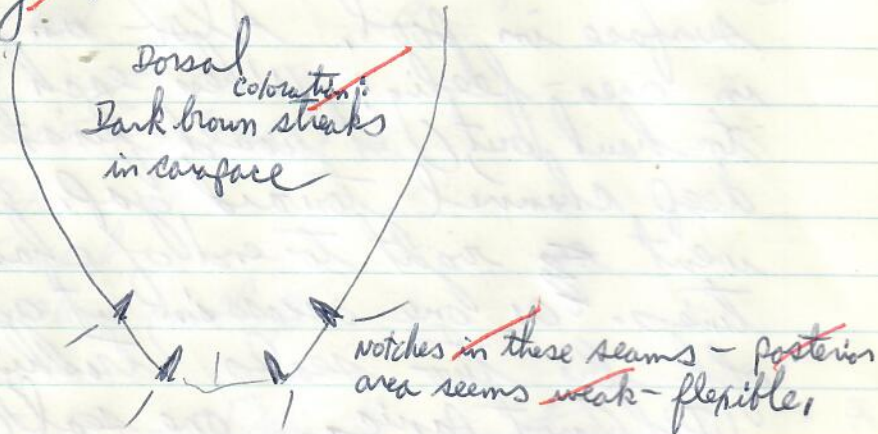 Dorsal
coloration:
Dark brown streaks
in carapace
Notches in these seams - posterior
area seems weak - flexible,